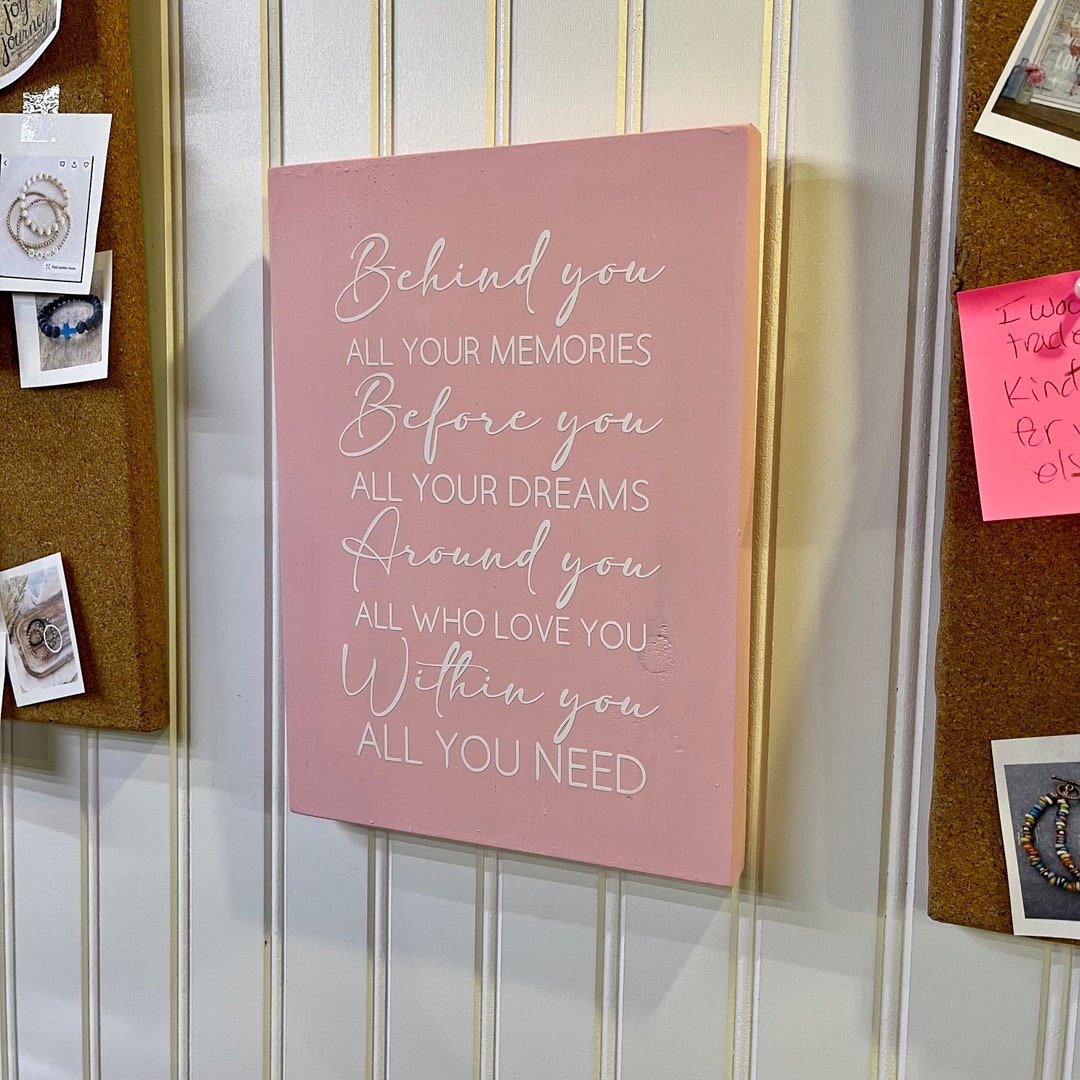 joy
journey
Behind you
ALL YOUR MEMORIES
Before you
ALL YOUR DREAMS
Around you
ALL WHO LOVE YOU
Within you
ALL YOU NEED
I
Kind
for